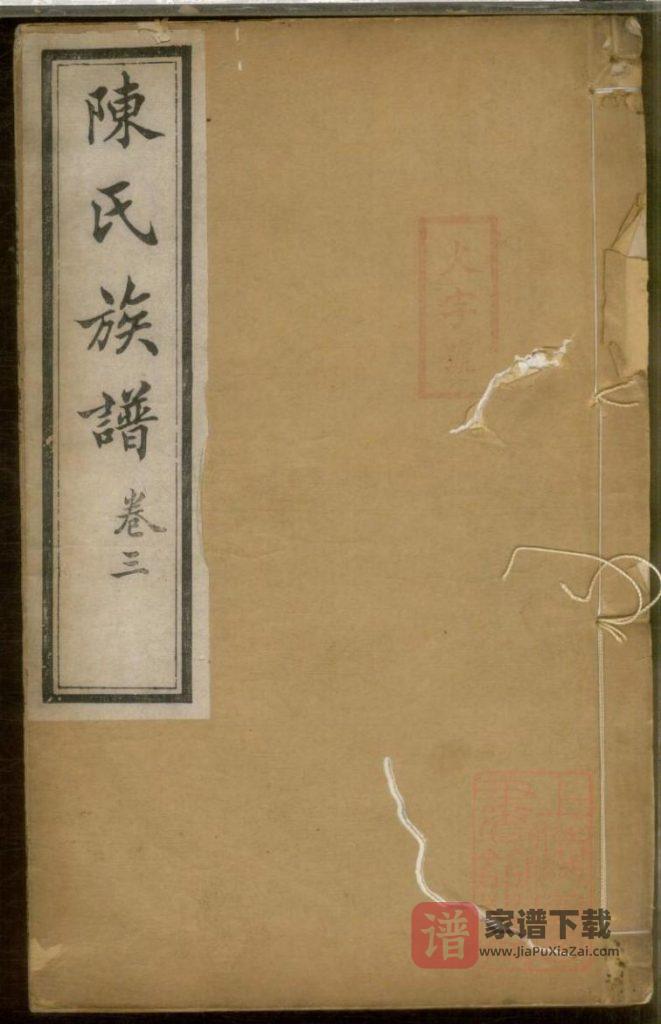 陳氏族譜
卷三
火字號
谱
家谱下载
www.JiaPuXiaZai.com